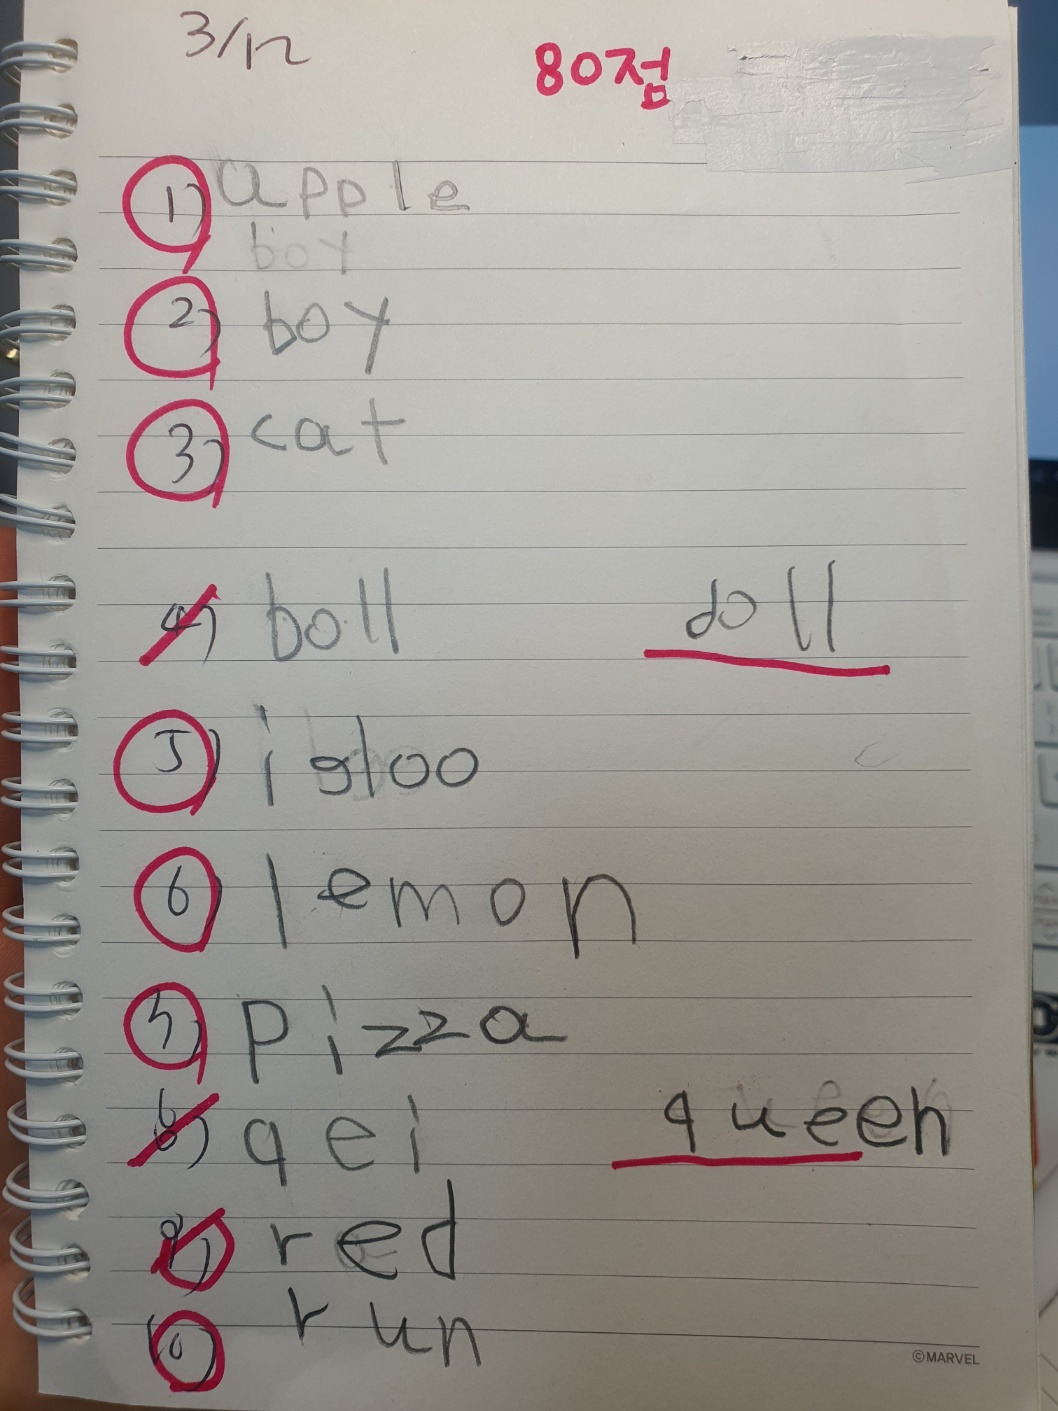 3/12
80점
1) apple
boy
2) boy
3) cat
4) boll doll
5) igloo
6) lemon
7) pizza
8) qei queen
9) red
10) run
©MARVEL